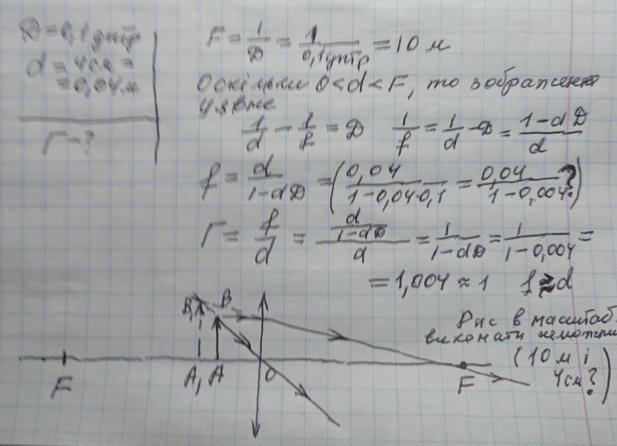 D = 0,1 дптр
d = 4см =
= 0,04м
Г - ?
F = 1/D = 1/0,1дптр = 10 м
Оскільки 0<d<F, то зображення
уявне
1/d - 1/f = D   1/f = 1/d - D = (1-dD)/d
f = d/(1-dD) = (0,04/(1-0,04·0,1) = 0,04/(1-0,004)?)
Г = f/d = (d/(1-dD))/d = 1/(1-dD) = 1/(1-0,004) =
= 1,004 ≈ 1   f ≈ d
Рис в масштабі
виконати неможливо
(10 м і
4см?)
B₁ B
F A₁ A O F